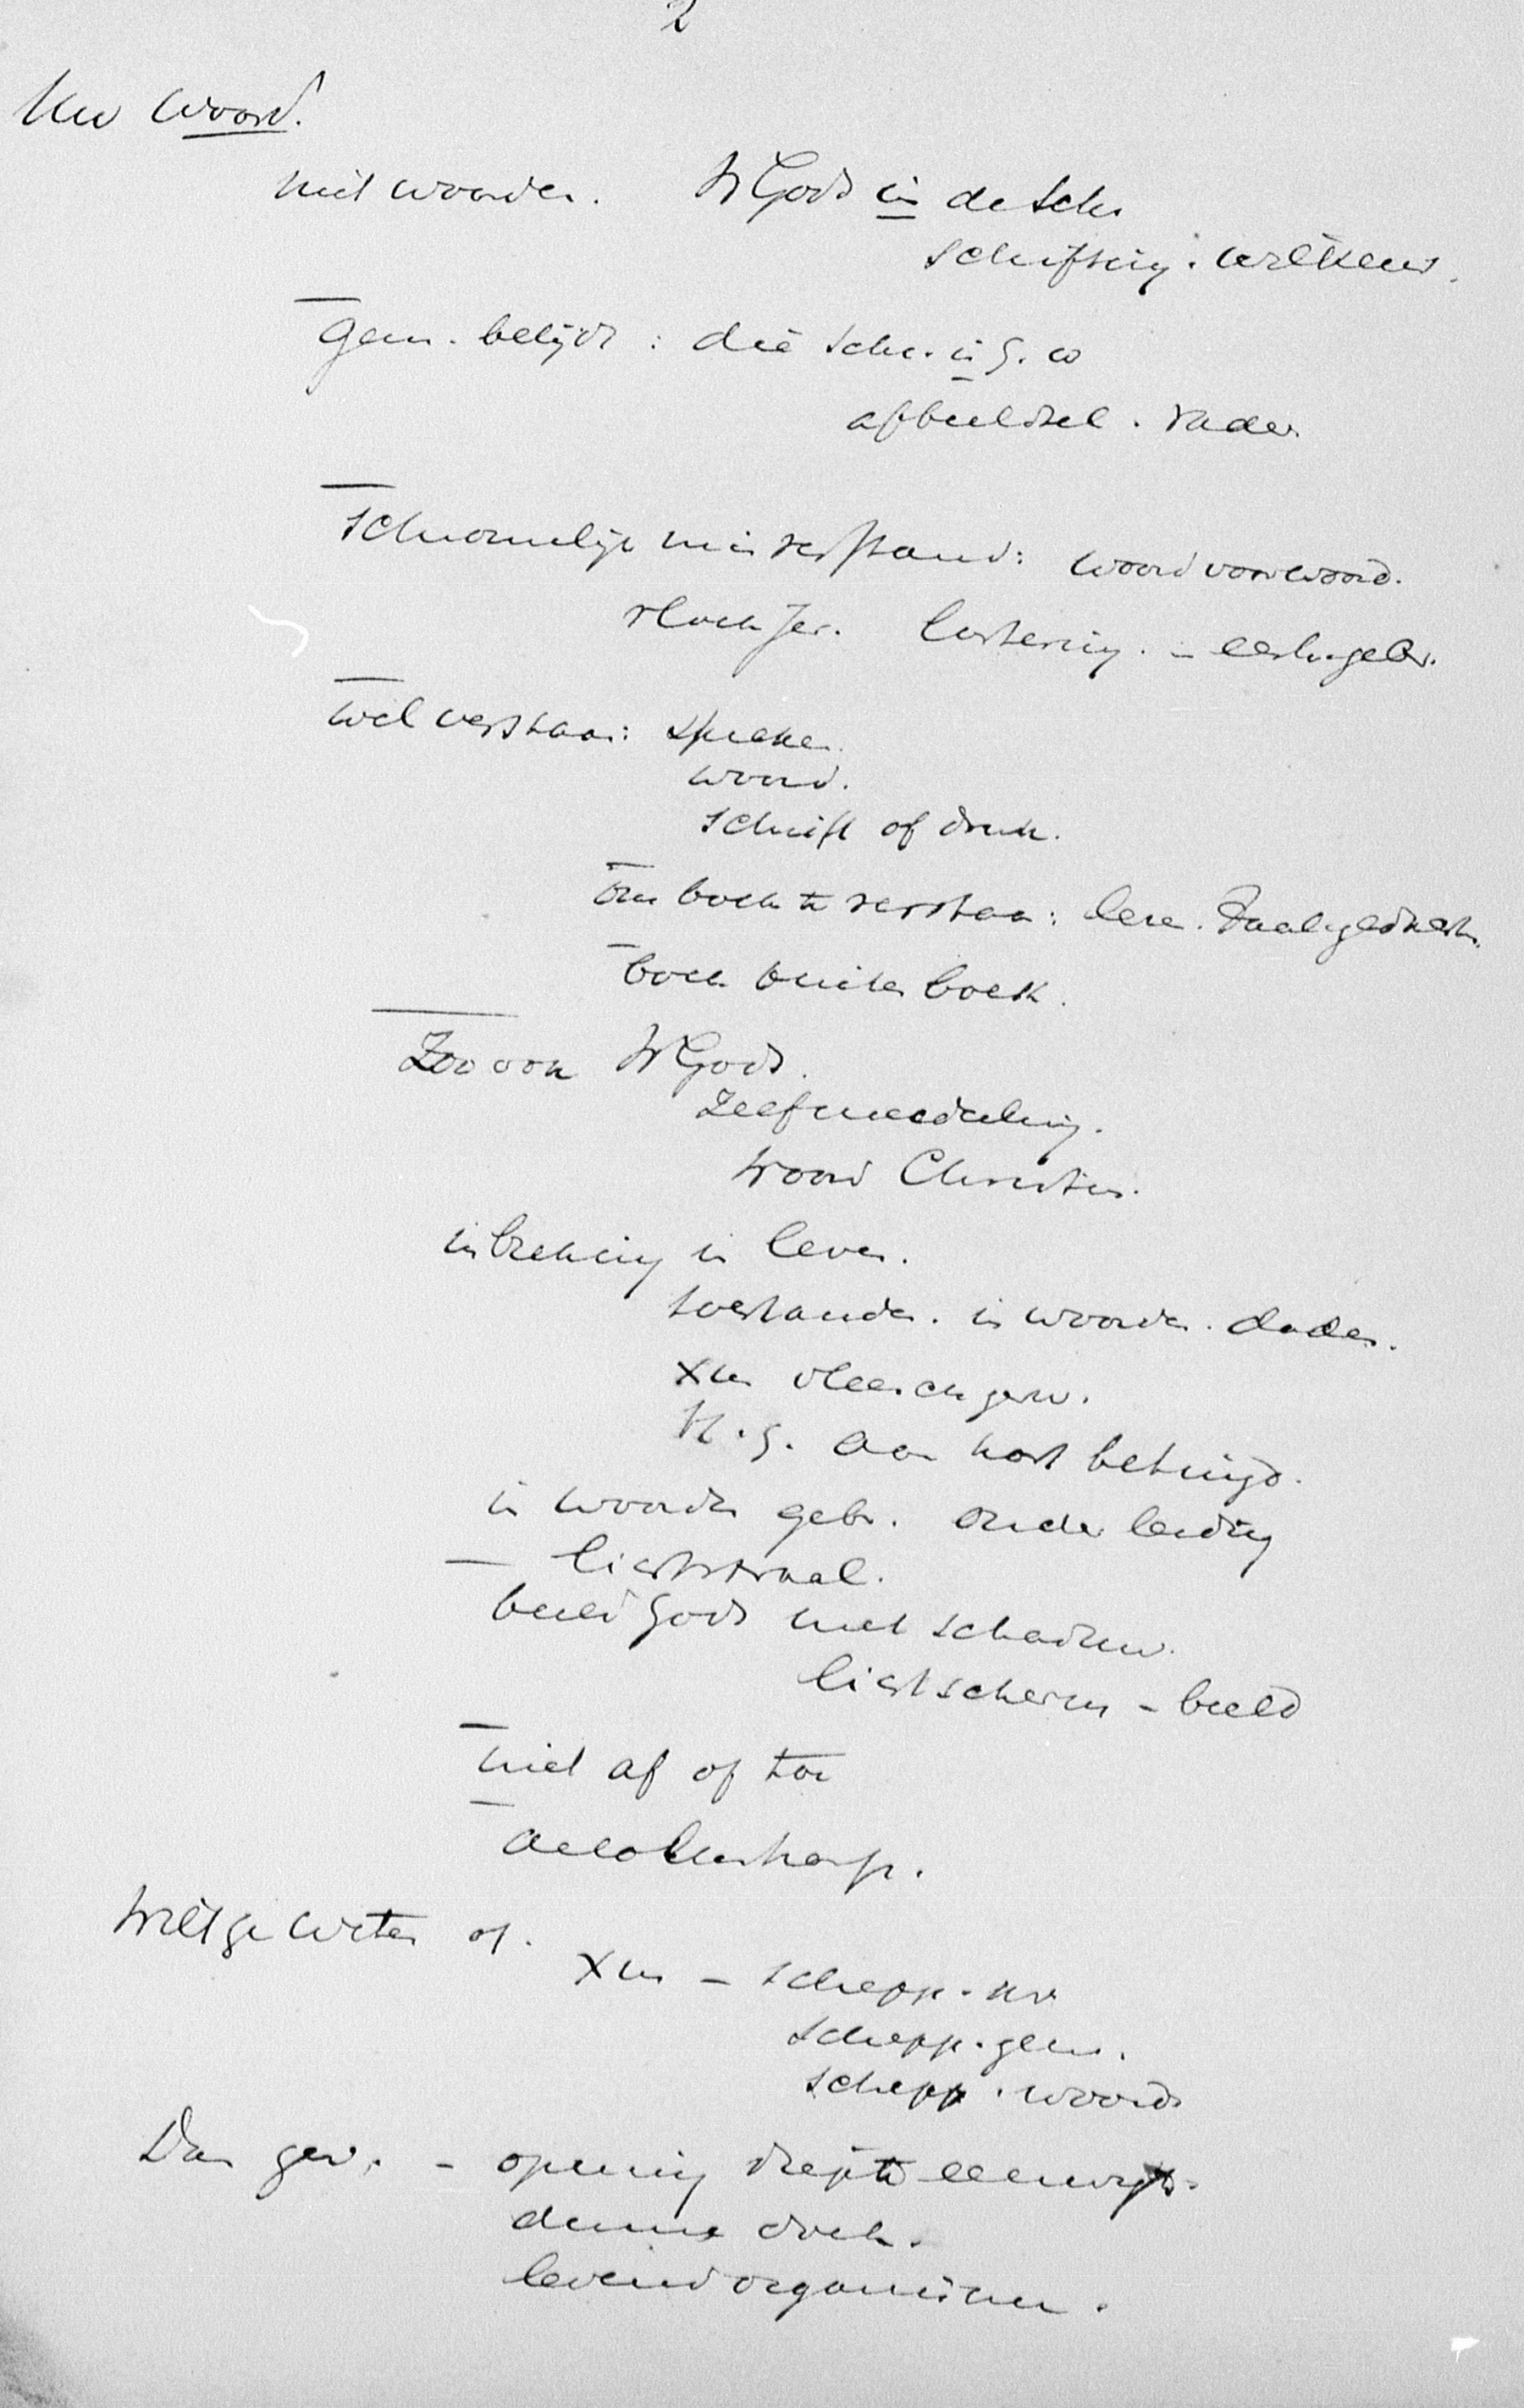 2
Uw Woord.
niet woorden. W Gods in de Schr
schifting. willekeur.
Gem. belijdt: die Schr. is G. W
afbeeldsel. Vader
Schromelijk misverstand: woord voor woord.
Vloek Jer. lastering.
Wel verstaan: spreken.
woord.
schrift of druk.
om boek te verstaan: leze. Taal. gedacht.
boek buiten boek.
Zoo ook W Gods.
Zelfmededeeling.
Woord Christus.
inbreking in leven.
toestanden. in woorden. daden.
Xus vleesch gew.
H.G. aan hart betuigd.
in woorden gebr. onder leiding
— lichtstraal.
beeld Gods met schaduw.
lichtscherm - beeld
niet af of toe
aeolusharp.
Wilt ge weten of.
Xus - schepp.
schepp. gem.
schepp. woord
Dan gew. - opening diepte eeuwigh.
dunne doek.
levend organisme.